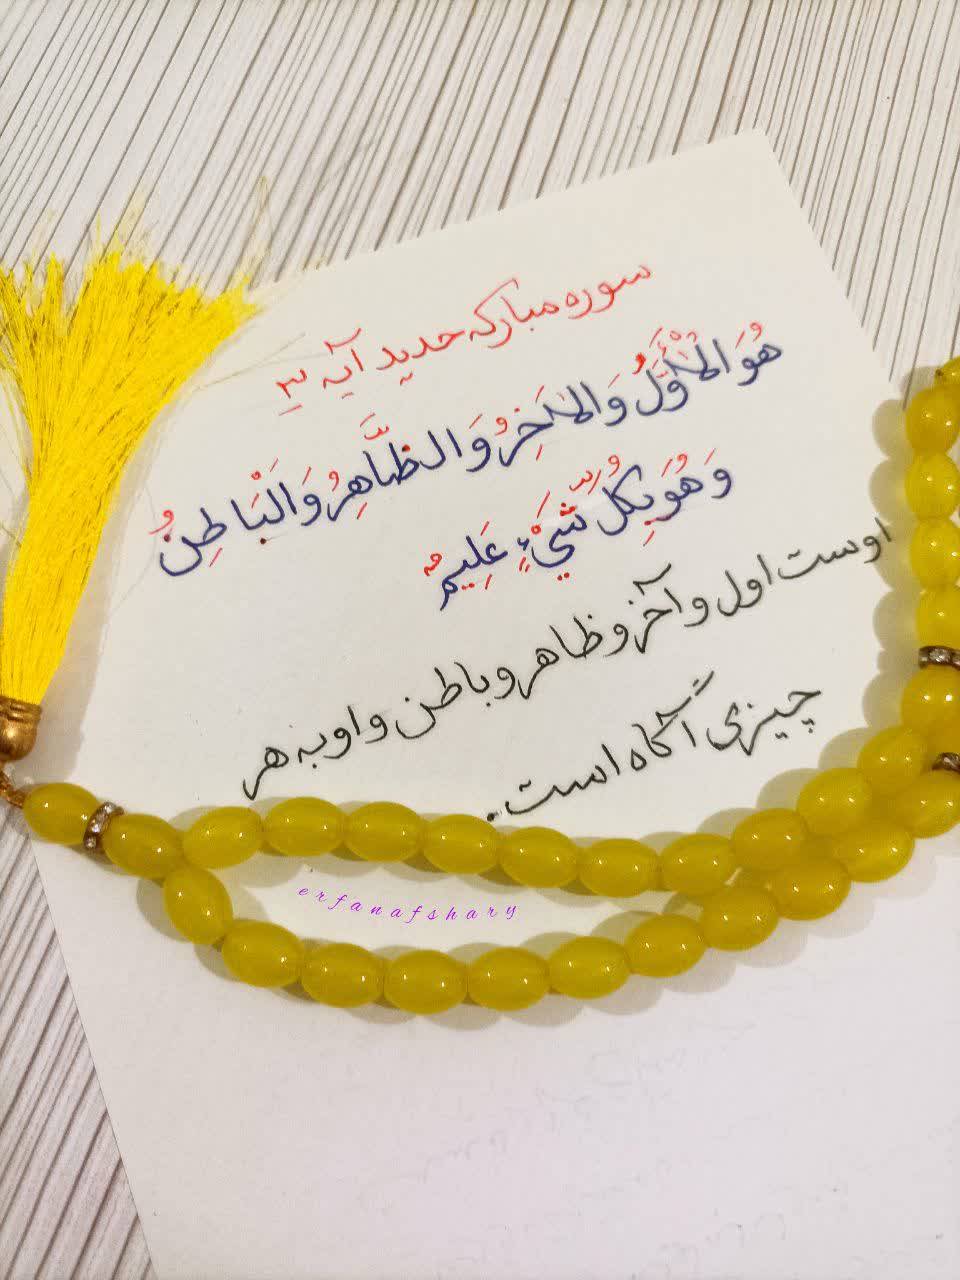 سوره مبارکه حدید آیه ۳
هُوَ الْأَوَّلُ وَالْآخِرُ وَالظَّاهِرُ وَالْبَاطِنُ
وَهُوَ بِكُلِّ شَيْءٍ عَلِيمٌ
اوست اول و آخر و ظاهر و باطن و او به هر
چیزی آگاه است.
erfanafshary